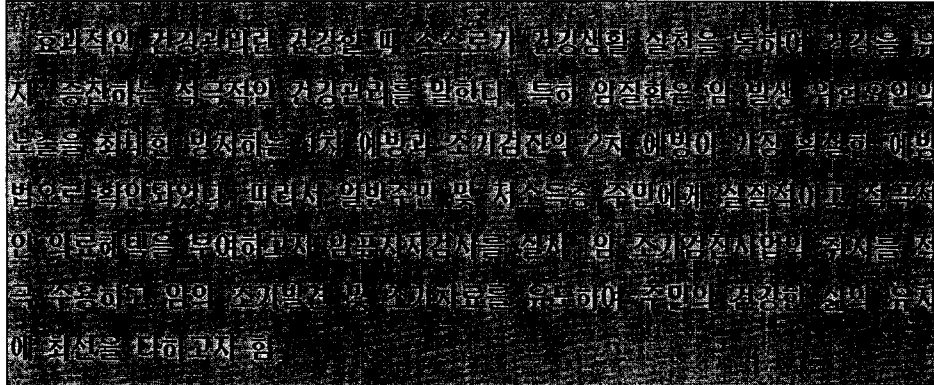 효과적인 건강관리란 건강할 때 스스로가 건강생활 실천을 통하여 건강을 유
지·증진하는 적극적인 건강관리를 말한다. 특히 암질환은 암 발생 위험요인의
노출을 최대한 방지하는 1차 예방과 조기검진의 2차 예방이 가장 확실한 예방
법으로 확인되었다. 따라서 일반주민 및 저소득층 주민에게 실질적이고 적극적
인 의료혜택을 부여하고자 암표지자검사를 실시, 암 조기검진사업의 취지를 적
극 수용하고 암의 조기발견 및 조기치료를 유도하여 주민의 건강한 삶의 유지
에 최선을 다하고자 함